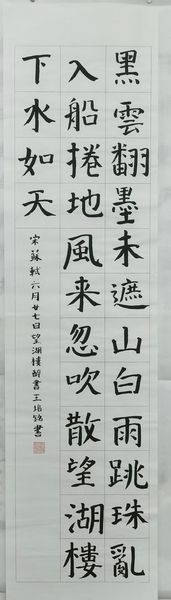 黑雲翻墨未遮山白雨跳珠亂
入船捲地風来忽吹散望湖樓
下水如天
宋蘇軾六月廿七日望湖樓醉書王培書